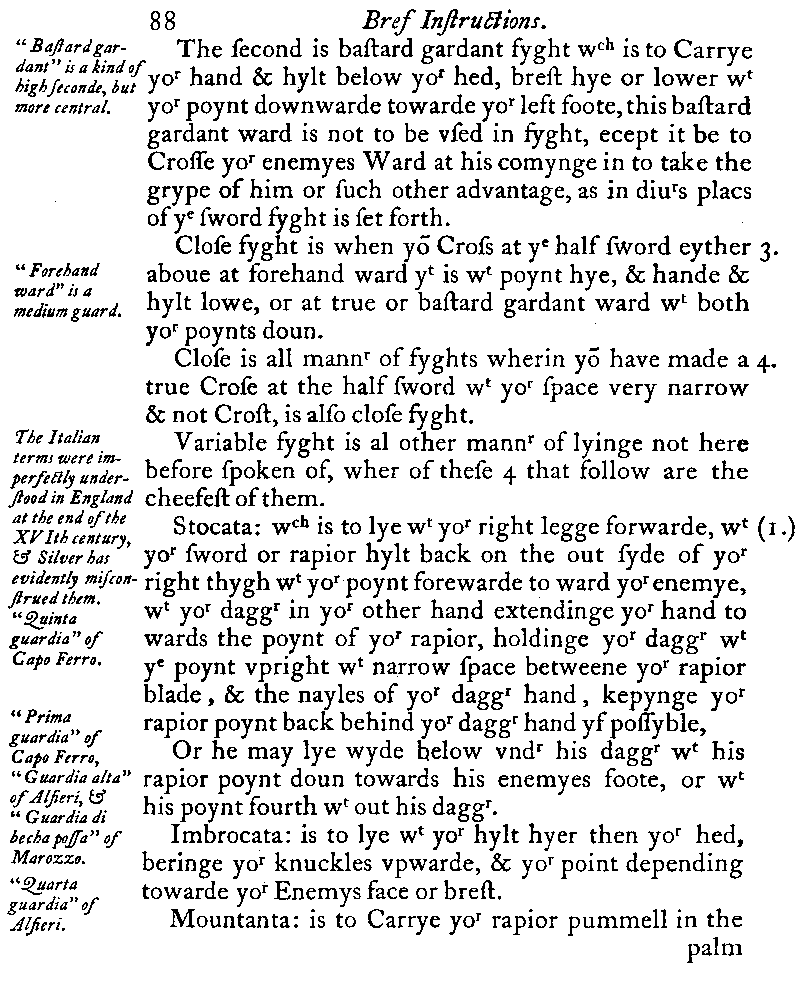 88 Bref Inſtructions.
The ſecond is baſtard gardant fyght wᶜʰ is to Carrye
yoʳ hand & hylt below yoʳ hed, breſt hye or lower wᵗ
yoʳ poynt downwarde towarde yoʳ left foote, this baſtard
gardant ward is not to be vſed in fyght, ecept it be to
Croſſe yoʳ enemyes Ward at his comynge in to take the
grype of him or ſuch other advantage, as in diuʳs placs
of yᵉ ſword fyght is ſet forth.
Cloſe fyght is when yō Croſs at yᵉ half ſword eyther 3.
aboue at forehand ward yᵗ is wᵗ poynt hye, & hande &
hylt lowe, or at true or baſtard gardant ward wᵗ both
yoʳ poynts doun.
Cloſe is all mannʳ of fyghts wherin yō have made a 4.
true Croſe at the half ſword wᵗ yoʳ ſpace very narrow
& not Croſt, is alſo cloſe fyght.
Variable fyght is al other mannʳ of lyinge not here
before ſpoken of, wher of theſe 4 that follow are the
cheefeſt of them.
Stocata: wᶜʰ is to lye wᵗ yoʳ right legge forwarde, wᵗ (1.)
yoʳ ſword or rapior hylt back on the out ſyde of yoʳ
right thygh wᵗ yoʳ poynt forewarde to ward yoʳ enemye,
wᵗ yoʳ daggʳ in yoʳ other hand extendinge yoʳ hand to
wards the poynt of yoʳ rapior, holdinge yoʳ daggʳ wᵗ
yᵉ poynt vpright wᵗ narrow ſpace betweene yoʳ rapior
blade, & the nayles of yoʳ daggʳ hand, kepynge yoʳ
rapior poynt back behind yoʳ daggʳ hand yf poſſyble,
Or he may lye wyde below vndʳ his daggʳ wᵗ his
rapior poynt doun towards his enemyes foote, or wᵗ
his poynt fourth wᵗ out his daggʳ.
Imbrocata: is to lye wᵗ yoʳ hylt hyer then yoʳ hed,
beringe yoʳ knuckles vpwarde, & yoʳ point depending
towarde yoʳ Enemys face or breſt.
Mountanta: is to Carrye yoʳ rapior pummell in the
palm
“Baſtard gar-
dant” is a kind of
high ſeconde, but
more central.
“Forehand
ward” is a
medium guard.
The Italian
terms were im-
perfectly under-
ſtood in England
at the end of the
XVIth century,
& Silver has
evidently miſcon-
ſtrued them.
“Quinta
guardia” of
Capo Ferro.
“Prima
guardia” of
Capo Ferro,
“Guardia alta”
of Alfieri, &
“Guardia di
becha poſſa” of
Marozzo.
“Quarta
guardia” of
Alfieri.